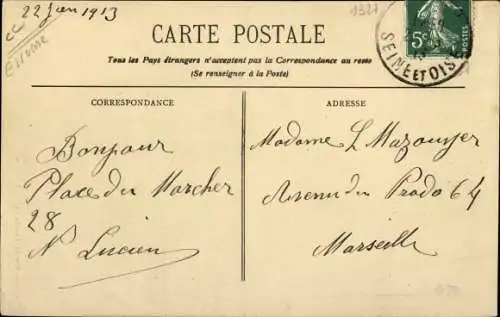 22 Jan 1913
Essonne
1327
CARTE POSTALE
Tous les Pays étrangers n'acceptent pas la Correspondance au recto
(Se renseigner à la Poste)
5c
POSTES
SEINE ET OISE
CORRESPONDANCE
Bonjour
Place du Marcher
28
N Lucien
ADRESSE
Madame L
Avenu du Prado 64
Marseille